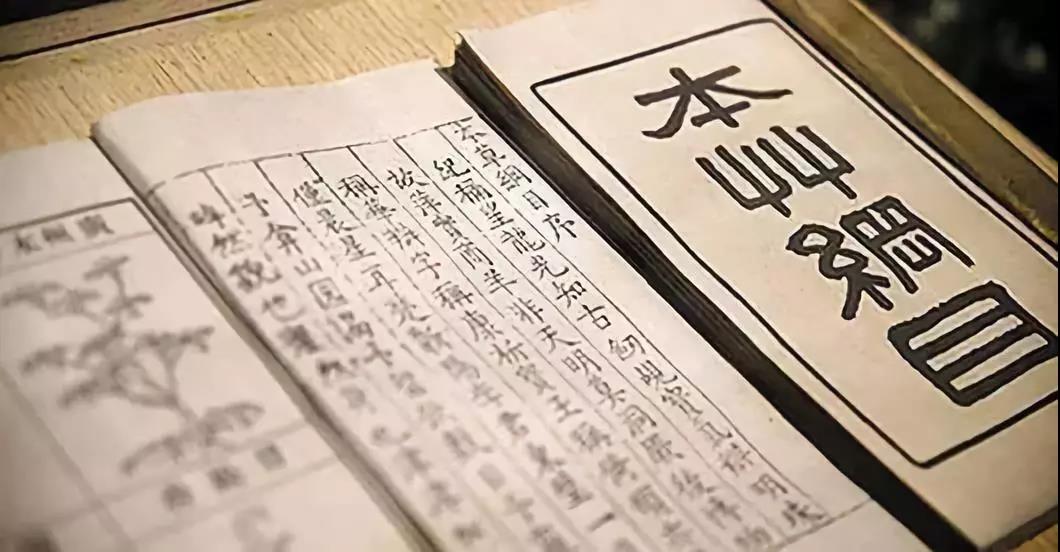 本草綱目
本草綱目序
紀稱望龍光知古劍覘寶氣辨明珠
故萍實商羊非天明莫洞厥後博物
稱華辯字稱康析寶玉稱倚頓
僅晨星耳楚蘄陽李君東璧一
予弇山園謁予留飲
睟然貌也癯然身也